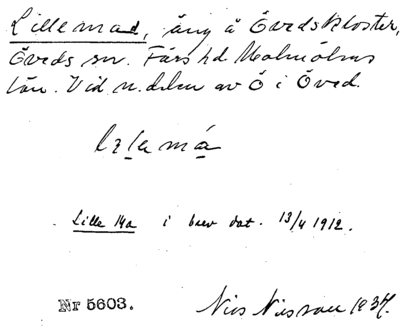 Lillemad, äng å Övedskloster,
Öveds sn. Färs hd Malmöhus
län. Vid n. delen av Ö i Öved.
Lille Ma i brev dat. 13/4 1912.
Nr 5603. Nils Nilsson 1937.